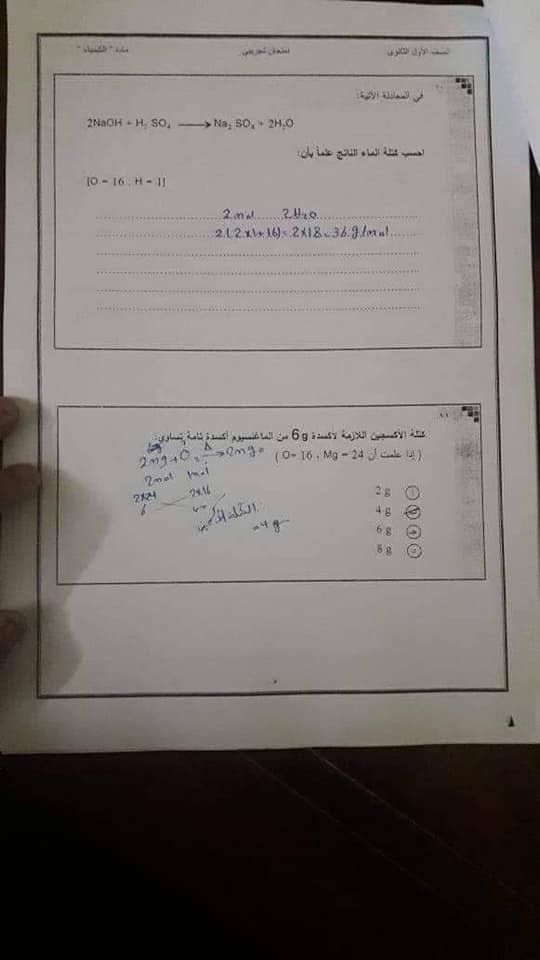 الصف الأول الثانوى امتحان تجريبى مادة " الكيمياء "
١٠
فى المعادلة الآتية:
2NaOH + H₂ SO₄ ⟶ Na₂ SO₄ + 2H₂O
احسب كتلة الماء الناتج علماً بأن:
[O = 16 . H = 1]
2 mol 2H₂O
2(2x1+16)= 2x18=36 g/mol
١١
كتلة الأكسجين اللازمة لأكسدة 6 g من الماغنسيوم أكسدة تامة تساوى:
( إذا علمت أن O= 16 ، Mg = 24 )
2mg + O₂ ⟶ 2mgo
Δ
2mol 1mol
2x24 2x16
6
= 4 g
2 g أ
4 g ب
6 g ج
8 g د
٨